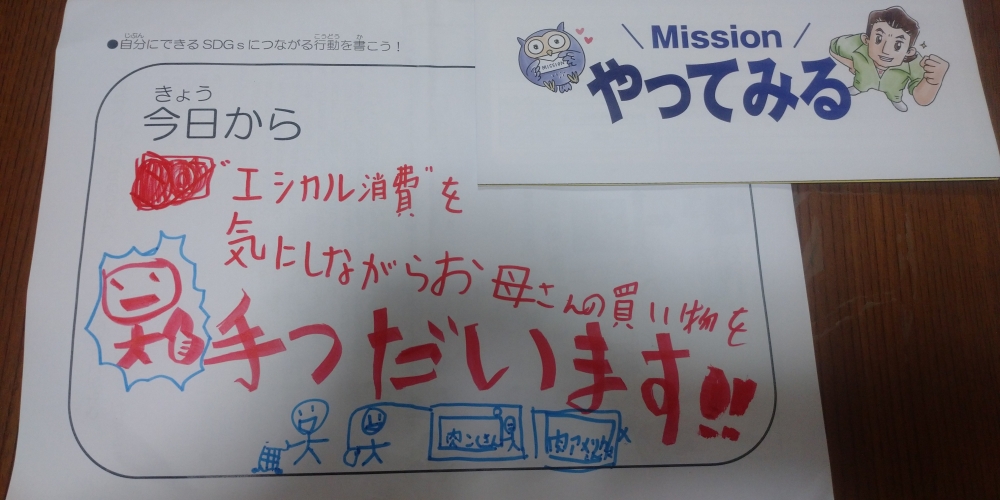 ●自分にできるSDGsにつながる行動を書こう！
じぶん こうどう か
\ Mission /
やってみる
MISSION
きょう
今日から
"エシカル消費"を
気にしながらお母さんの買い物を
手つだいます!!